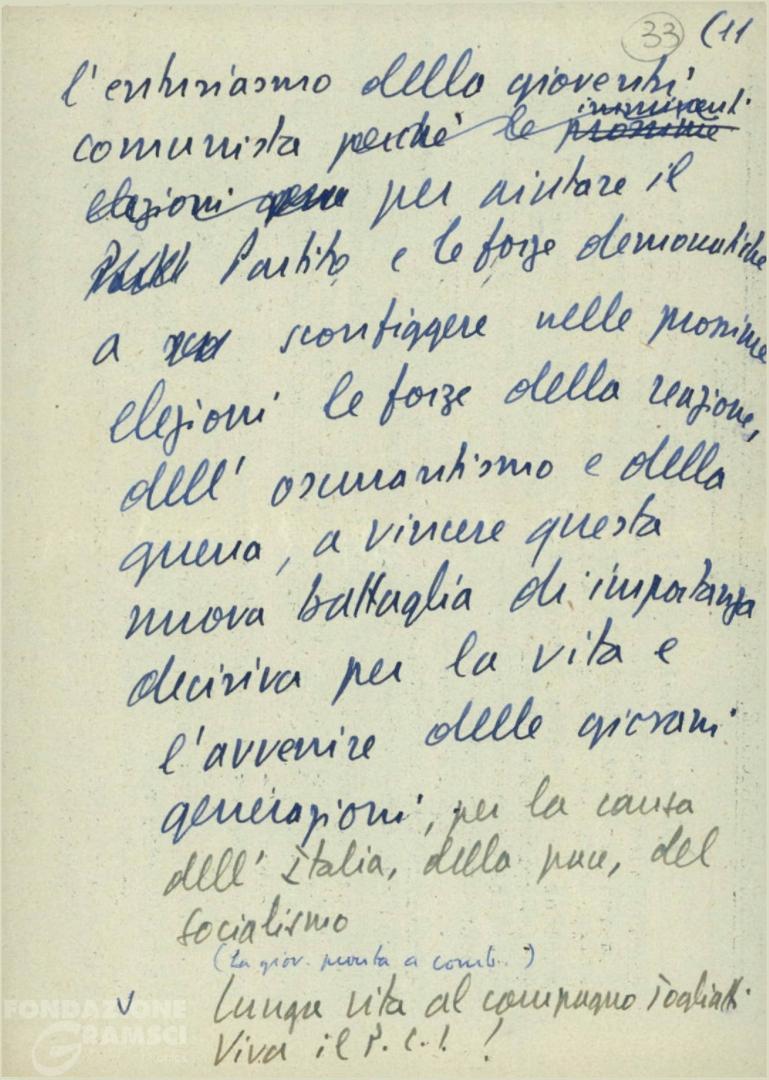 33 (11
l'entusiasmo della gioventù
imminenti
comunista perché le prossime
elezioni per aiutare il
Partito e le forze democratiche
a scontiggere nelle prossime
elezioni le forze della reazione,
dell'oscurantismo e della
guerra, a vincere questa
nuova battaglia di importanza
decisiva per la vita e
l'avvenire delle giovani
generazioni, per la causa
dell'Italia, della pace, del
socialismo
(La giov. pronta a comb.)
V Lunga vita al compagno Togliatti
Viva il P.C.I.!
FONDAZIONE
GRAMSCI